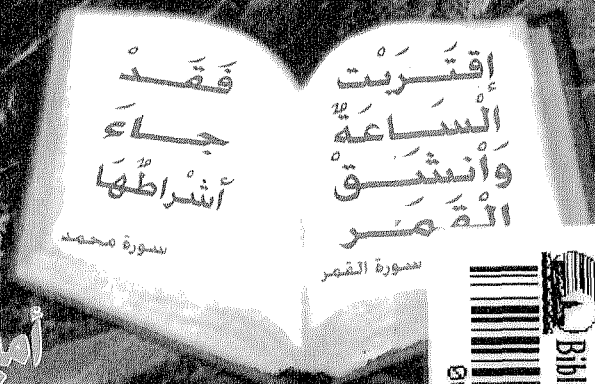 إقتَرَبْت
الْسَـاعَةُ
وَأنشَقْ
الْقَمَر
سورة القمر
فَقَدْ
جاءَ
أشْراطُهَا
سورة محمد
Bibl
0